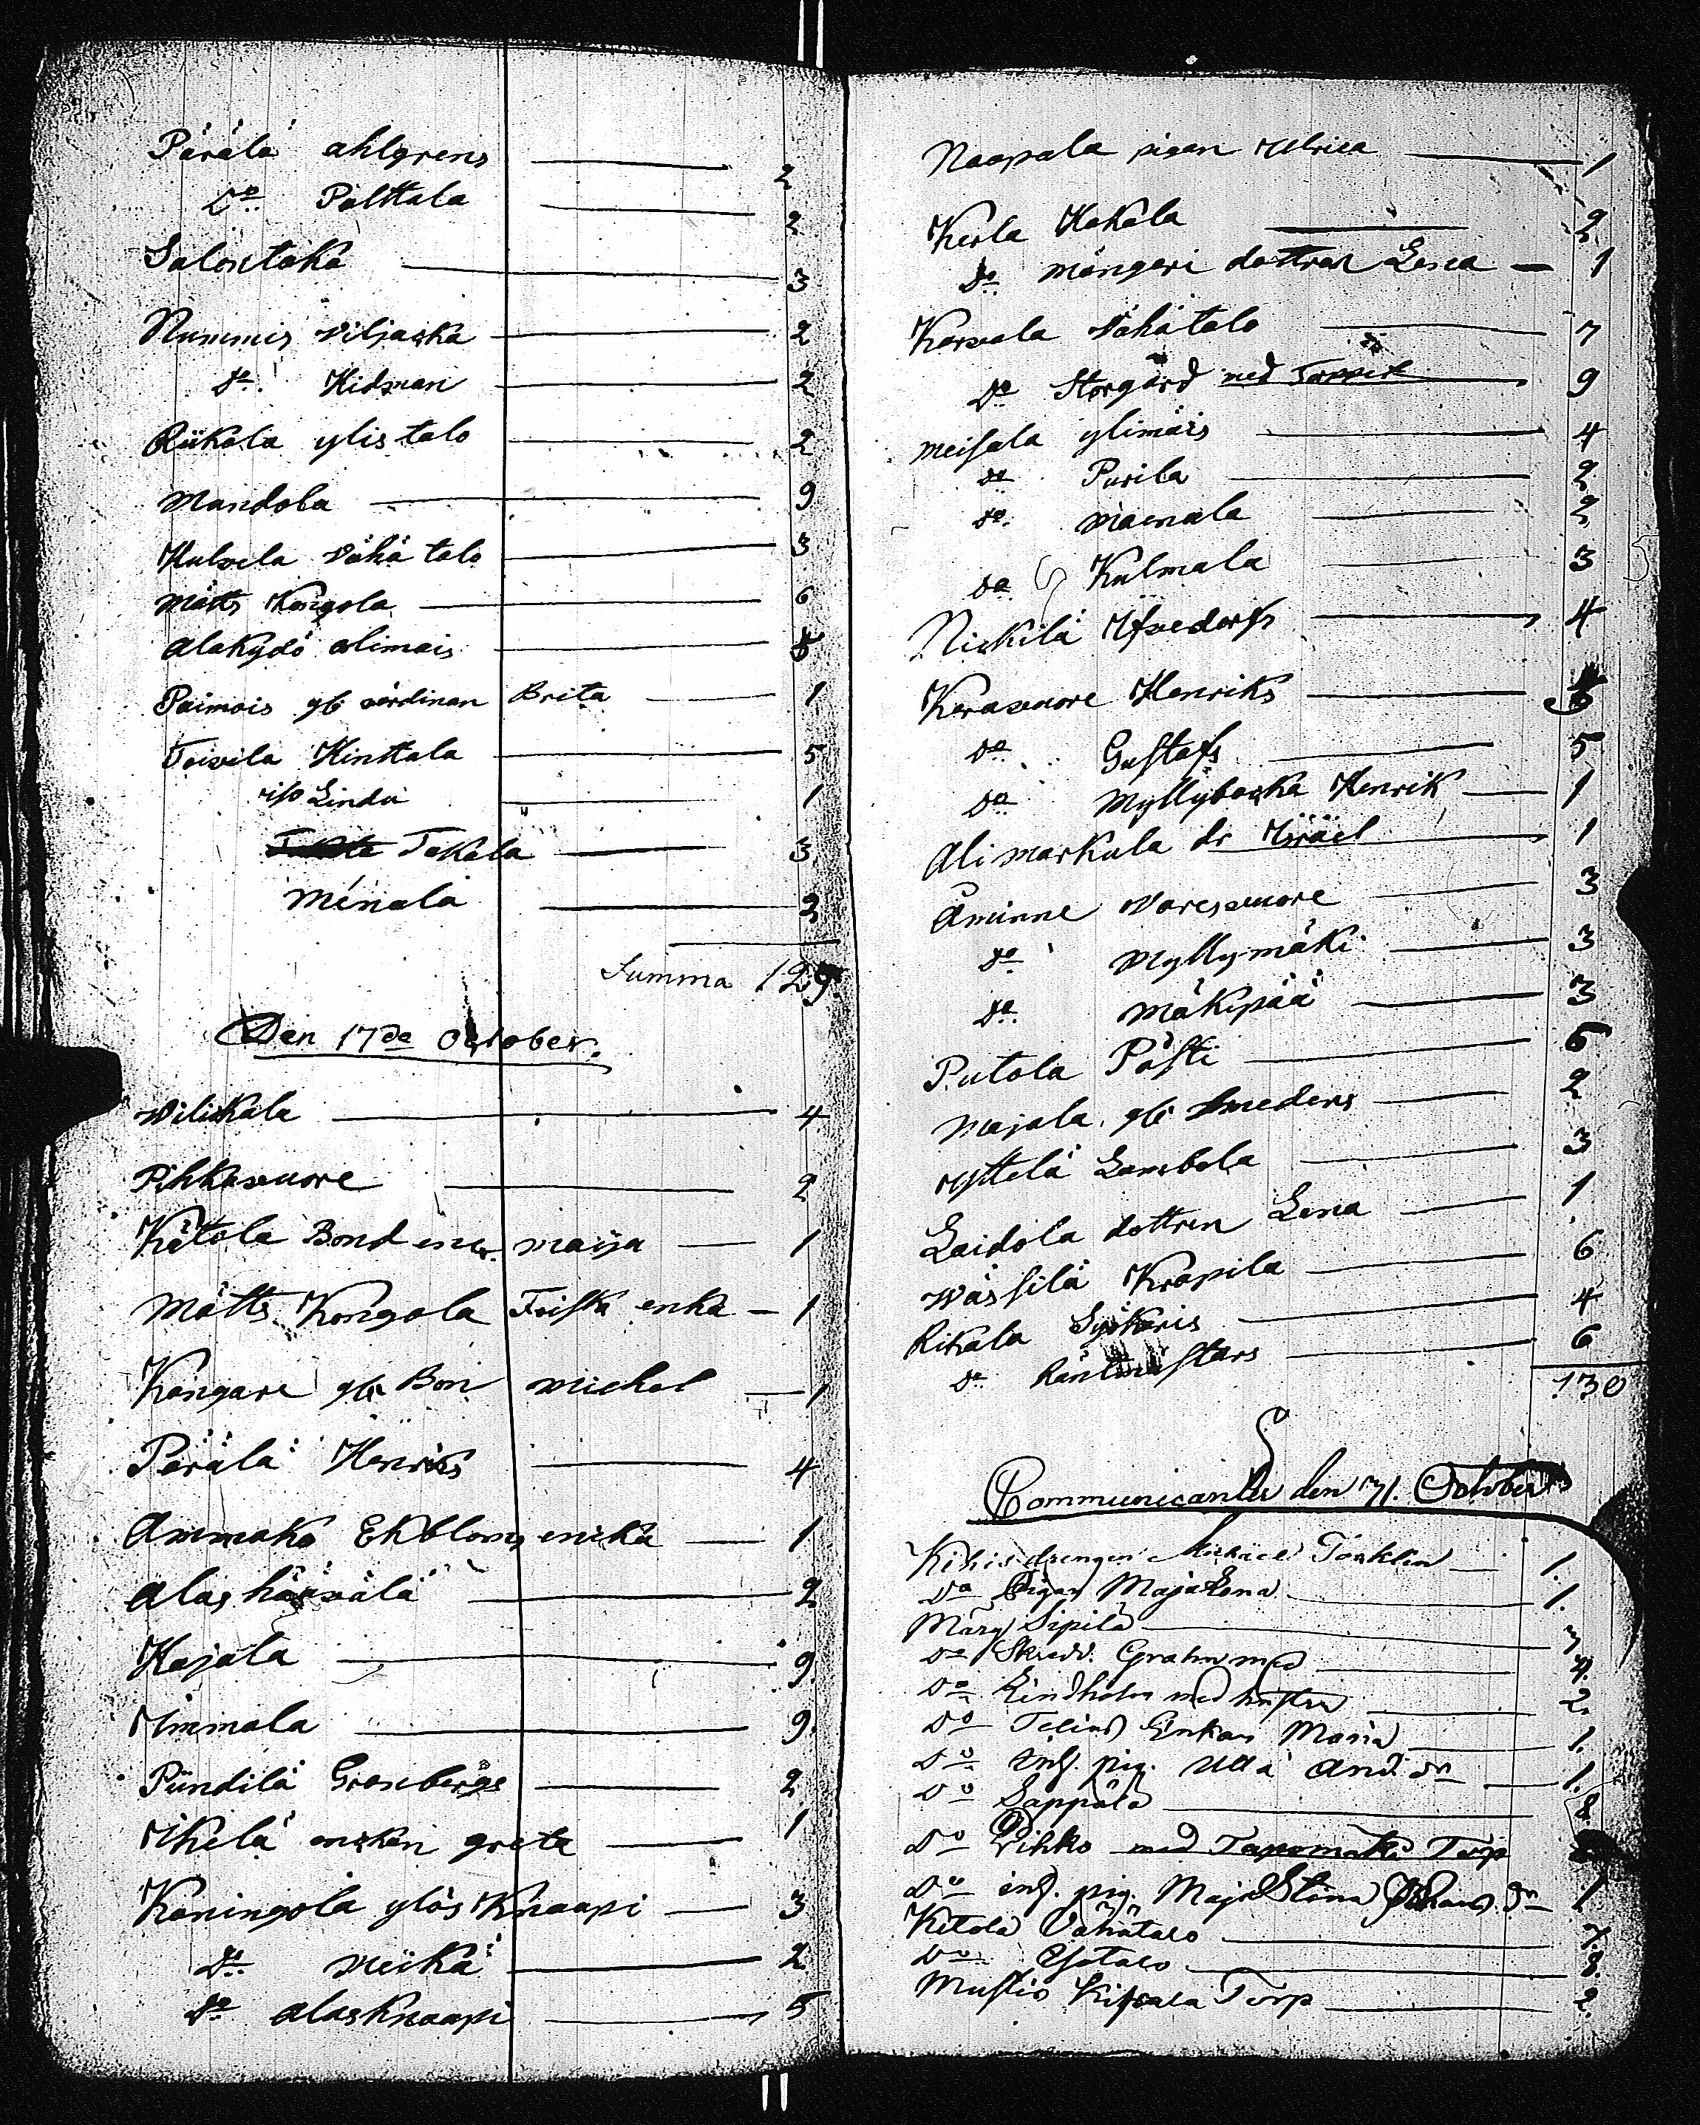 Pärälä ahlgrens 2
Do Pälttala 2
Salontaka 3
Nummis Viljaska 2
Do Hidman 2
Riikala ylis talo 2
Mandola 9
Hulvela Vähä talo 3
Mätts Kongola 6
alakydö alimais
Paimois gb värdinan Brita 1
Toivila Hinttala 5
Lindu 1
Takala 3
Menala 2
Summa 129.
Den 17de October.
Wiliskala 4
Pihkavuore 2
Kätola Bond maija 1
Mätts Kongola enka 1
Kangare gb Bon michel 1
Pärälä Henriks 4
Ammako Ekbloms enka 1
alas härvälä 2
Hajala 9
Immala 9
Pündilä Granbergs 2
Ikelä enkan greta 1
Koningola ylös Knaapi 3
Do Miikä 2
Do alas Knaapi 5
Naapala pigan Ulrica 1
Kerla Hakala 2
Do mängeri dottren Lena 1
Karvala Vähätalo 7
Do Storgård med Torpet 9
meisala ylimäis 4
Do Purila 2
Do maenala 2
Do Kulmala 3
Nickilä Ufvedorfs 4
Keravuore Henriks
Do Gustafs 5
Do Myllyboska Henrik 1
Alimarkula dr Israel 1
Åminne Varesvuore 3
Do Myllymäki 3
Do Mäkipää 3
Putola Påsti 5
Majala gb Smeders 2
Yttelä Lambola 3
Laidola dottren Lena 1
Wässilä Krapila 6
Rikala Sjökäris 4
Do stars 6
130
Communicanter den 31. October
Kihis drengen Michael Törklin 1.
Do Pigan Maja Lena 1.
Märy Sipilä 3
Do Skredd. Grahn med 4.
Do Lindholm med hustru 2.
Do Telins Enkan Maria 1.
Do inh. pig. Ulla And. dr 1.
Do Sappälä 8
Do Pihko med Tapomäki Torp
Do inh. pig. Maja Stina Johans dr 1
Ketola Vähätalo 7.
Do Isotalo 8.
Mustio Kiskala Torp 2.